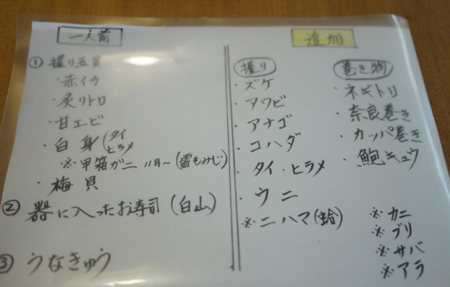 一人前
① 握り五貫
・赤イカ
・炙りトロ
・甘エビ
・白身(タイ
ヒラメ
※甲箱がニ 11月~(雪もみじ)
・梅貝
② 器に入ったお寿司(白山)
③ うなきゅう
追加
握り
・ズケ
・アワビ
・アナゴ
・コハダ
・タイ・ヒラメ
・ウニ
※ニハマ(蛤)
巻き物
・ネギトロ
・奈良巻き
・カッパ巻き
・鮑キュウ
※カニ
※ブリ
※サバ
※アラ